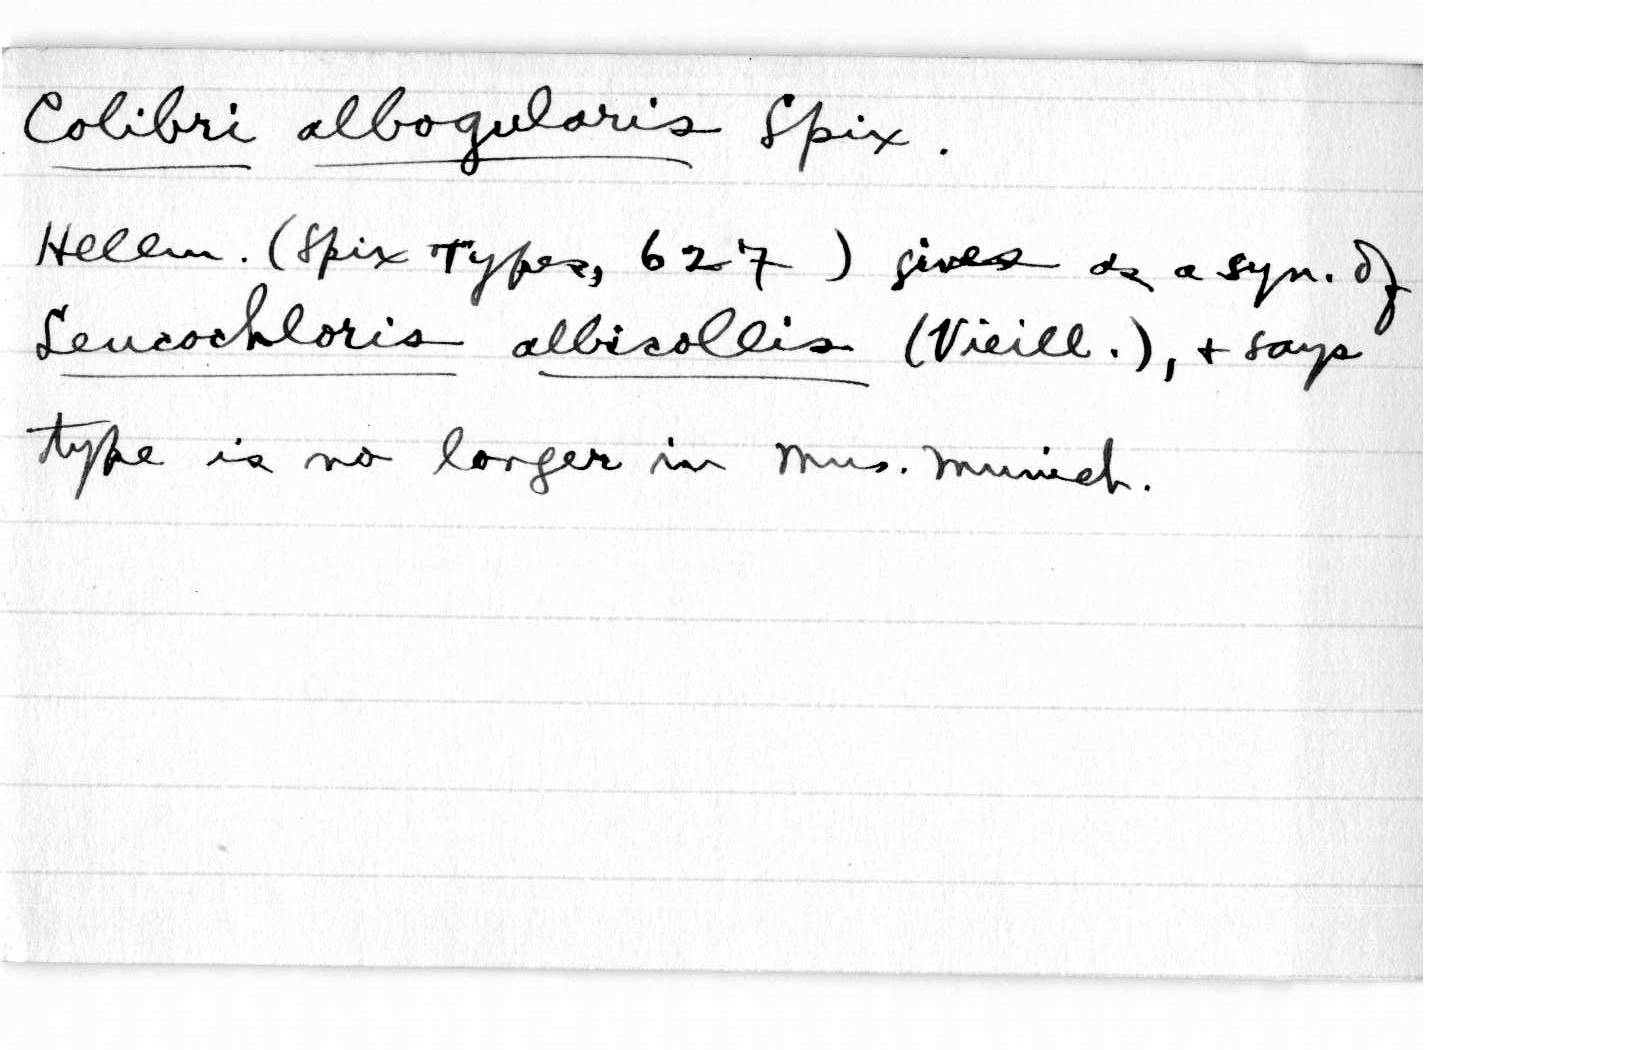 Colibri albogularis Spix.
Hellm. (Spix Types, 627) gives as a syn. of
Leucochloris albicollis (Vieill.), + says
type is no longer in Mus. Munich.